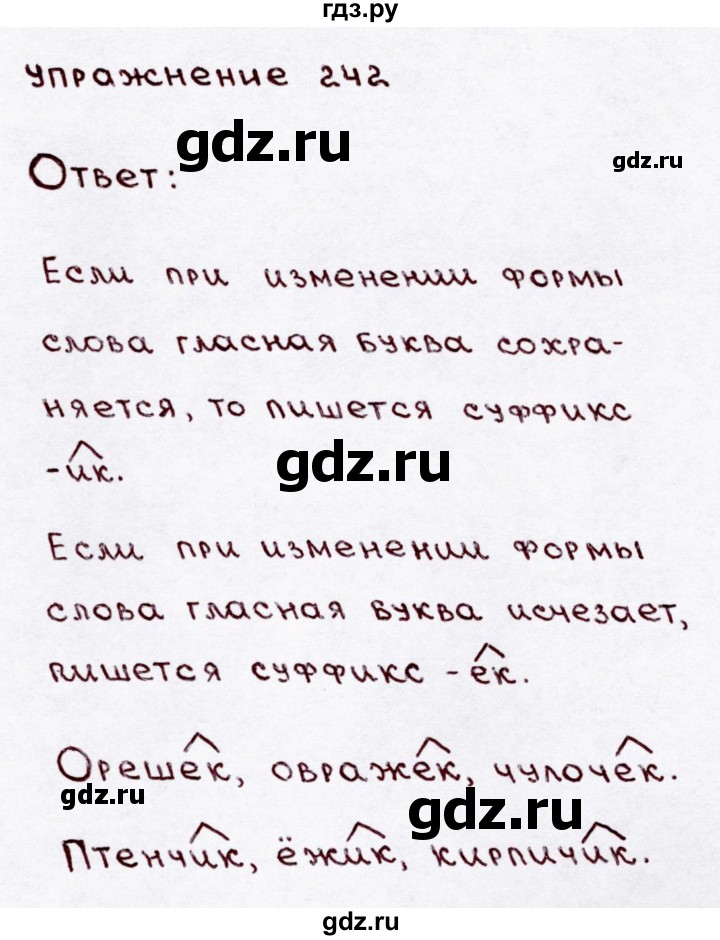 гдз.ру
Упражнение 242
gdz.ru
gdz.ru
Ответ:
Если при изменении формы
слова гласная буква сохра-
няется, то пишется суффикс
gdz.ru
-ик.
Если при изменении формы
слова гласная буква исчезает,
пишется суффикс -ёк.
Орешек, овражек, чулочек.
gdz.ru
gdz.ru
Птенчик, ёжик, кирпичик.
gdz.ru